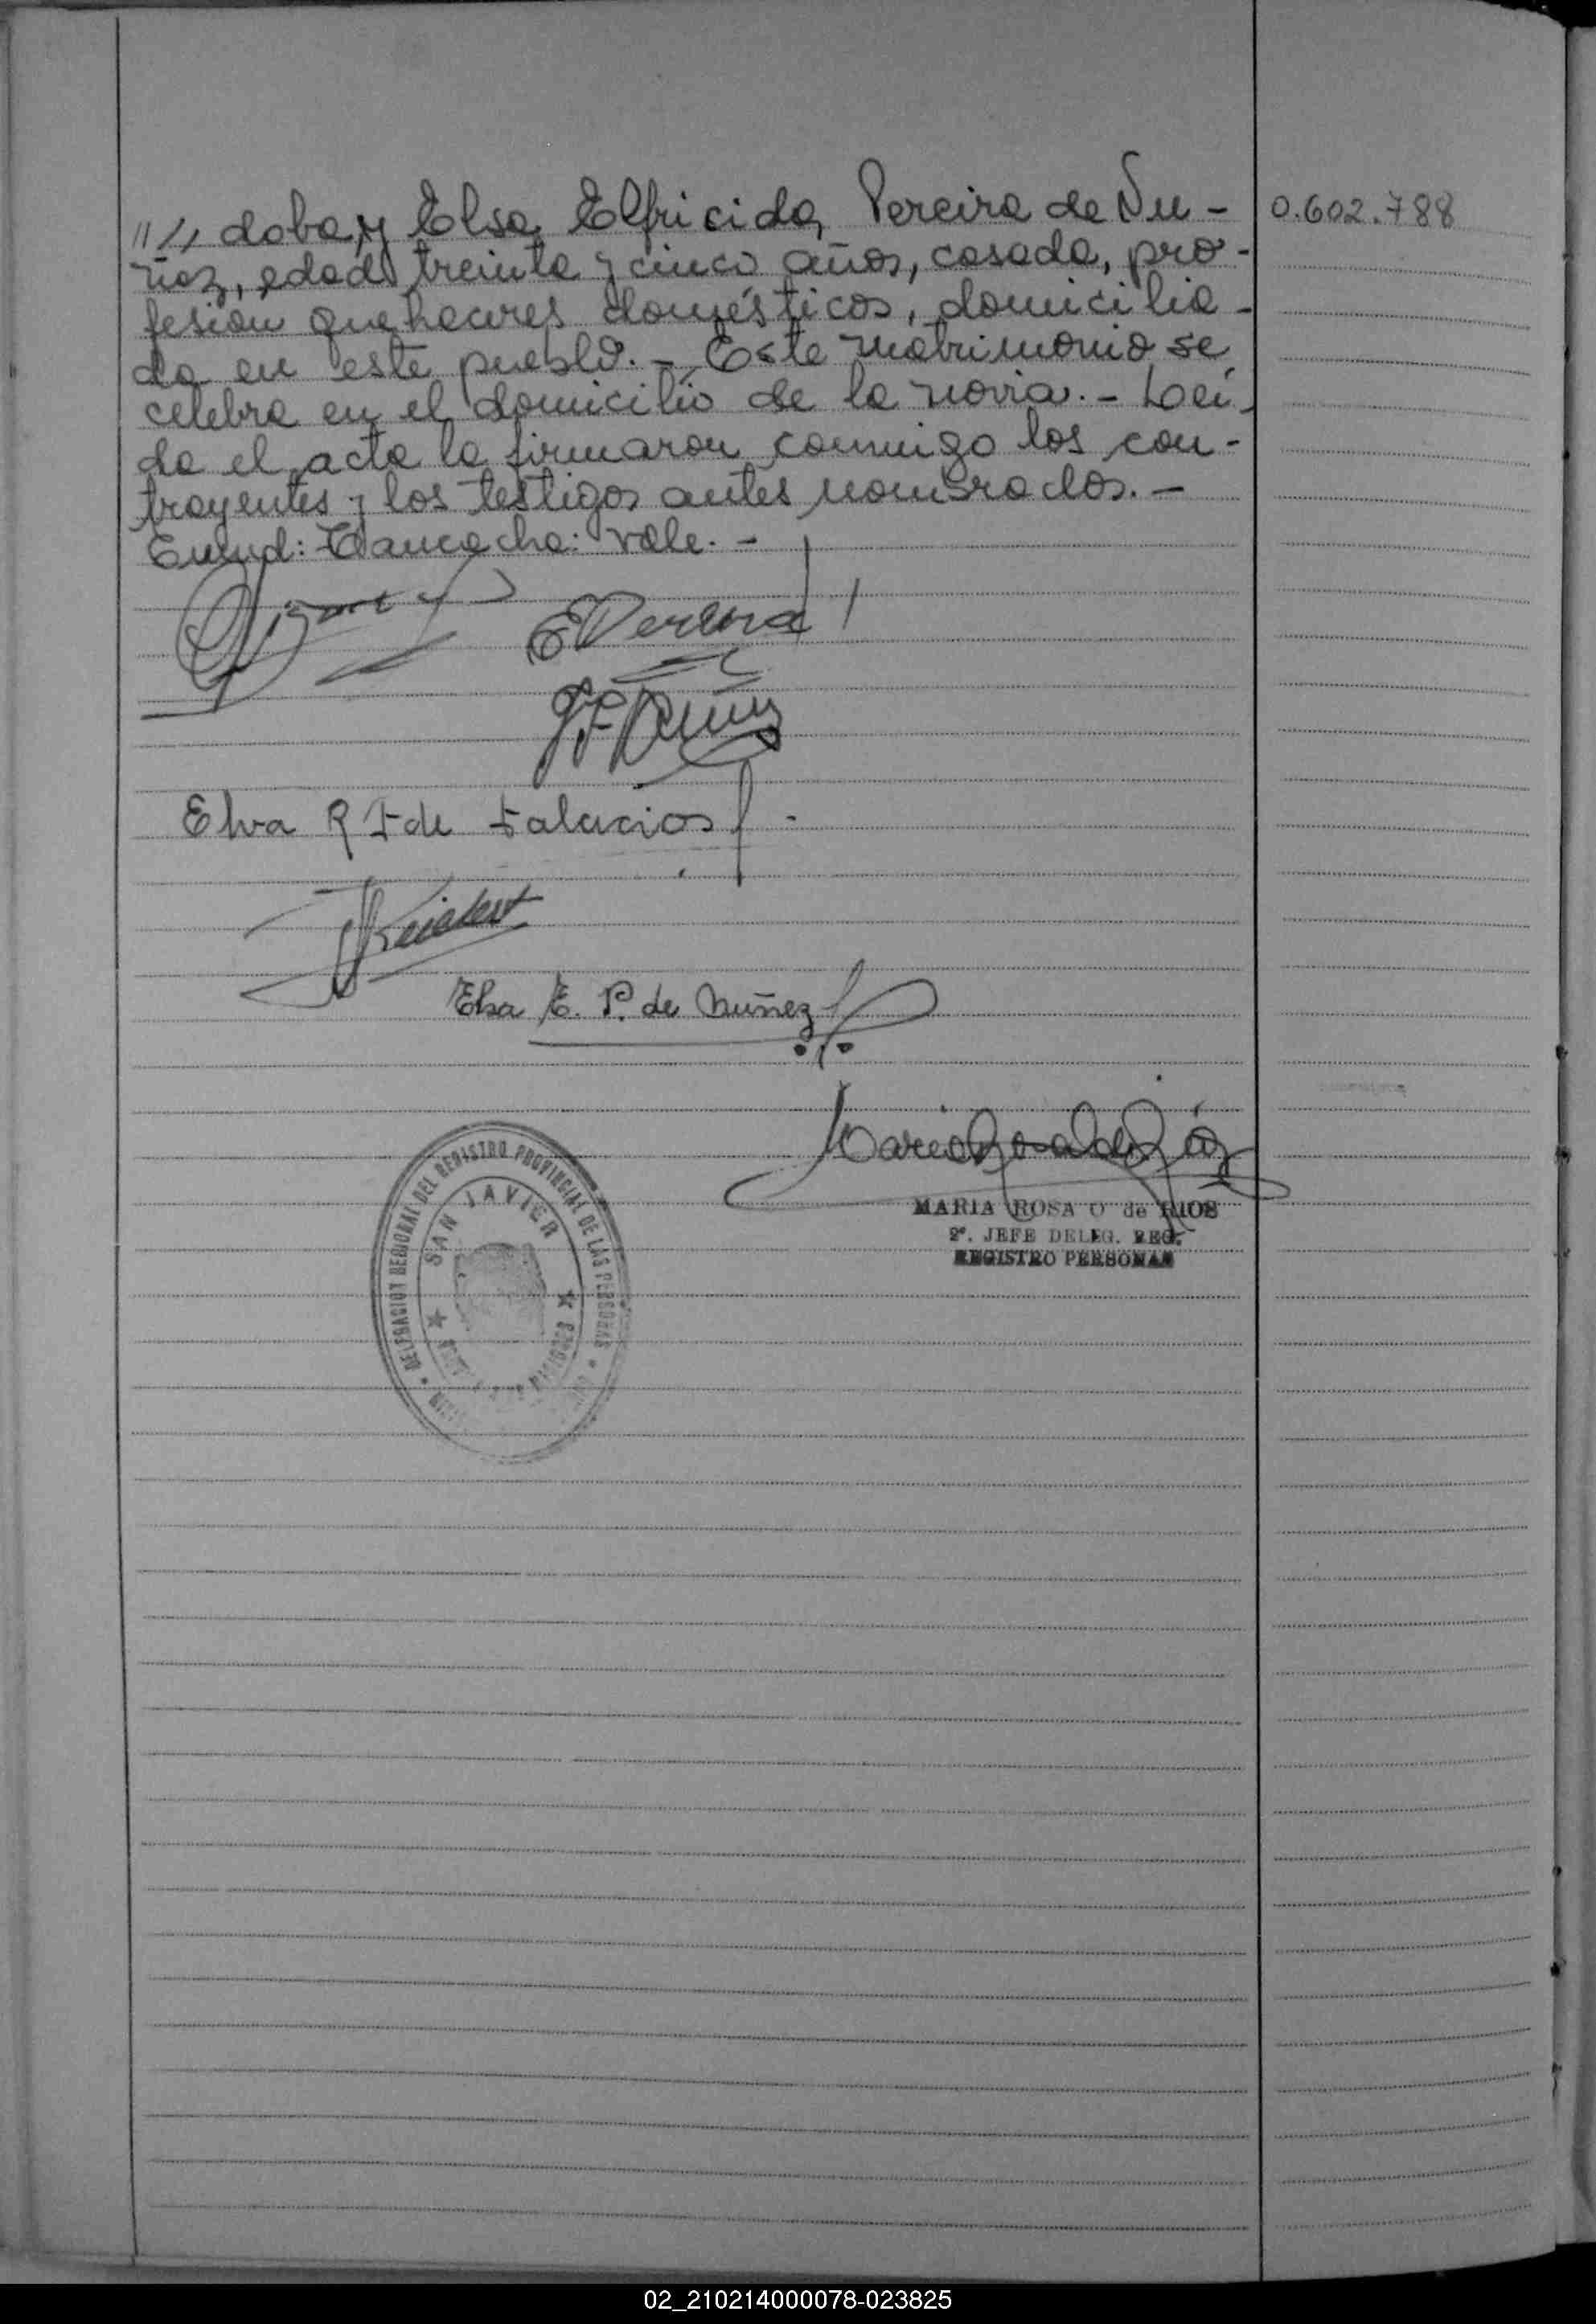 "// doba, y Elsa Elfricida Pereira de Nu- 0.602.788
ñez, edad treinta y cinco años, casada, pro-
fesion quehaceres domésticos, domicilia-
da en este pueblo.- Este matrimonio se
celebra en el domicilio de la novia.- Leí-
da el acta la firmaron conmigo los con-
trayentes y los testigos antes nombrados.-
Enmd: vale.-
EPereira
Elva R de Palacios
Elsa E. P. de Nuñez
MARIA ROSA O de RIOS
2º. JEFE DELEG. REG.
REGISTRO PERSONAS
DELEGACION REGIONAL DEL REGISTRO PROVINCIAL DE LAS PERSONAS
SAN JAVIER
MISIONES
02_210214000078-023825